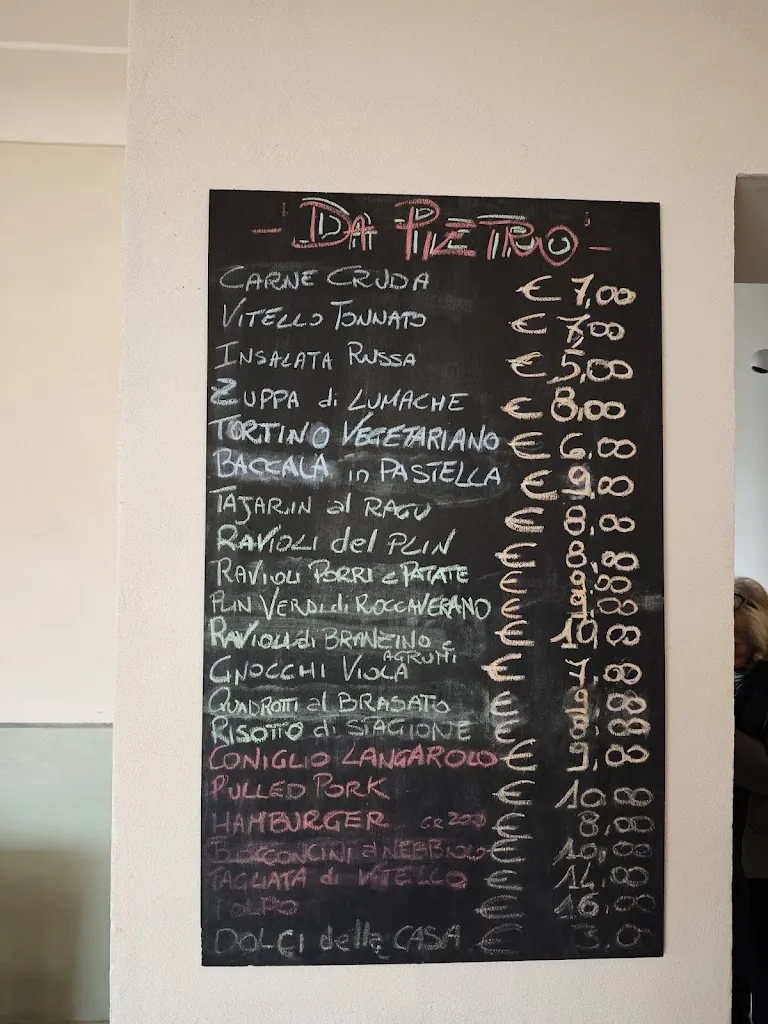 - DA PIETRO -
CARNE CRUDA € 7,00
VITELLO TONNATO € 7,00
INSALATA RUSSA € 5,00
ZUPPA di LUMACHE € 8,00
TORTINO VEGETARIANO € 6,00
BACCALÀ in PASTELLA € 9,00
TAJARIN al RAGU € 8,00
RAVIOLI del PLIN € 8,00
RAVIOLI PORRI e PATATE € 9,00
PLIN VERDI di ROCCAVERANO € 9,00
RAVIOLI di BRANZINO e AGRUMI € 10,00
GNOCCHI VIOLA € 7,00
QUADROTTI al BRASATO € 9,00
RISOTTO di STAGIONE € 8,00
CONIGLIO LANGAROLO € 9,00
PULLED PORK € 10,00
HAMBURGER GR 200 € 8,00
BOCCONCINI al NEBBIOLO € 10,00
TAGLIATA di VITELLO € 14,00
POLPO € 16,00
DOLCI della CASA € 3,0